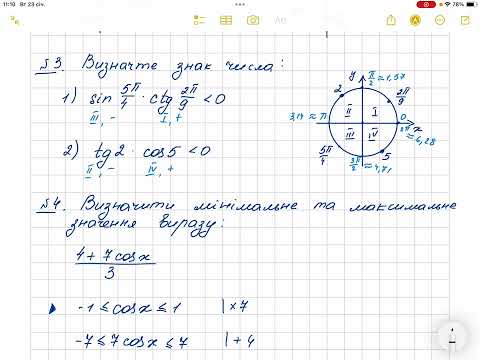 11:19 Вт 23 січ.
78%
№3. Визначте знак числа:
1) sin 5π/4 · ctg 2π/9 < 0
III, - I, +
2) tg2 · cos5 < 0
II, - IV, +
y π/2 ≈ 1,57
2 2π/9
II I
3,14 ≈ π 0
2π x
≈ 6,28
III IV
5π/4 3π/2 ≈ 4,71 5
№4. Визначити мінімальне та максимальне
значення виразу:
4 + 7cosx
3
-1 ≤ cosx ≤ 1 | × 7
-7 ≤ 7cosx ≤ 7 | + 4